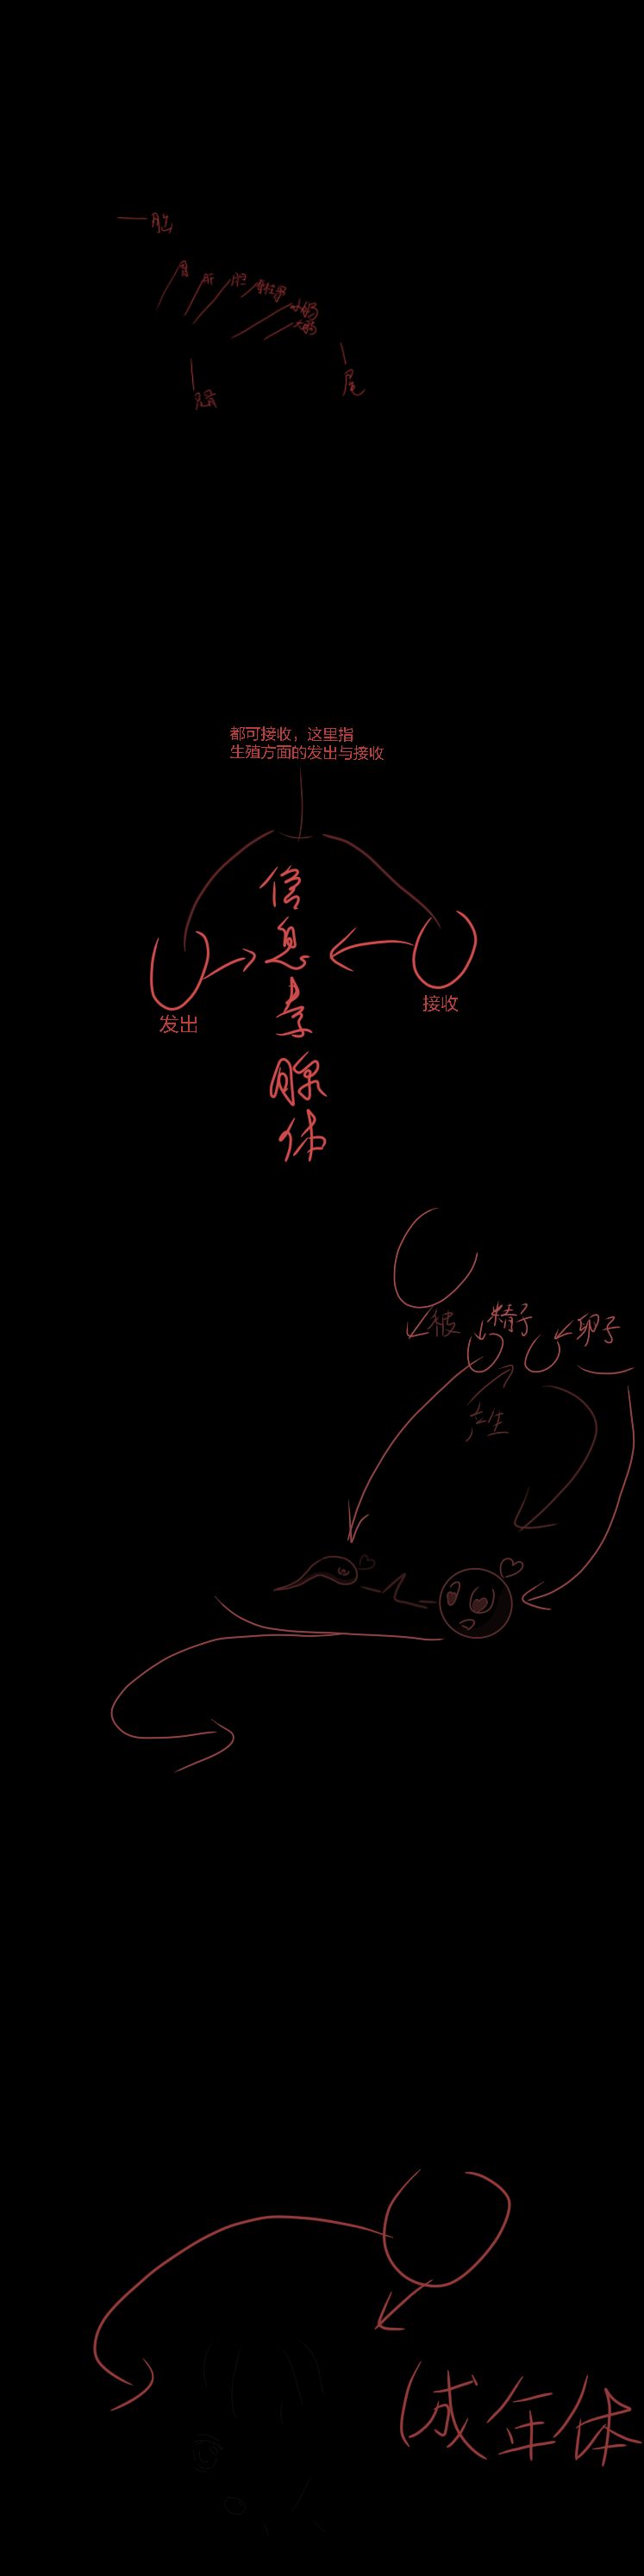 脑
胃
肝
胆
小肠
大肠
尾
都可接收，这里指
生殖方面的发出与接收
信
息
素
腺
体
发出
接收
被
精子
卵子
产生
成年体